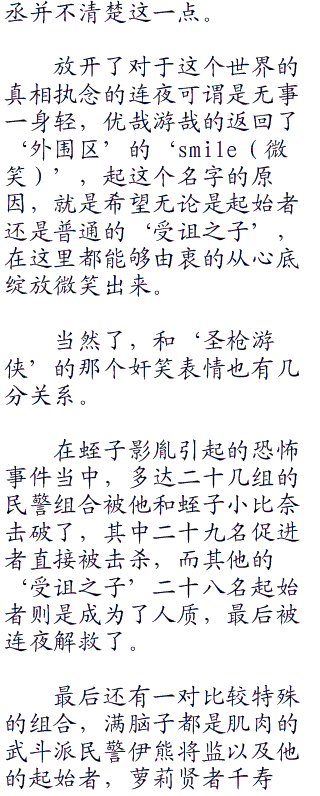 丞并不清楚这一点。
放开了对于这个世界的
真相执念的连夜可谓是无事
一身轻，优哉游哉的返回了
‘外围区’的‘smile（微
笑）’，起这个名字的原
因，就是希望无论是起始者
还是普通的‘受诅之子’，
在这里都能够由衷的从心底
绽放微笑出来。
当然了，和‘圣枪游
侠’的那个奸笑表情也有几
分关系。
在蛭子影胤引起的恐怖
事件当中，多达二十几组的
民警组合被他和蛭子小比奈
击破了，其中二十九名促进
者直接被击杀，而其他的
‘受诅之子’二十八名起始
者则是成为了人质，最后被
连夜解救了。
最后还有一对比较特殊
的组合，满脑子都是肌肉的
武斗派民警伊熊将监以及他
的起始者，萝莉贤者千寿